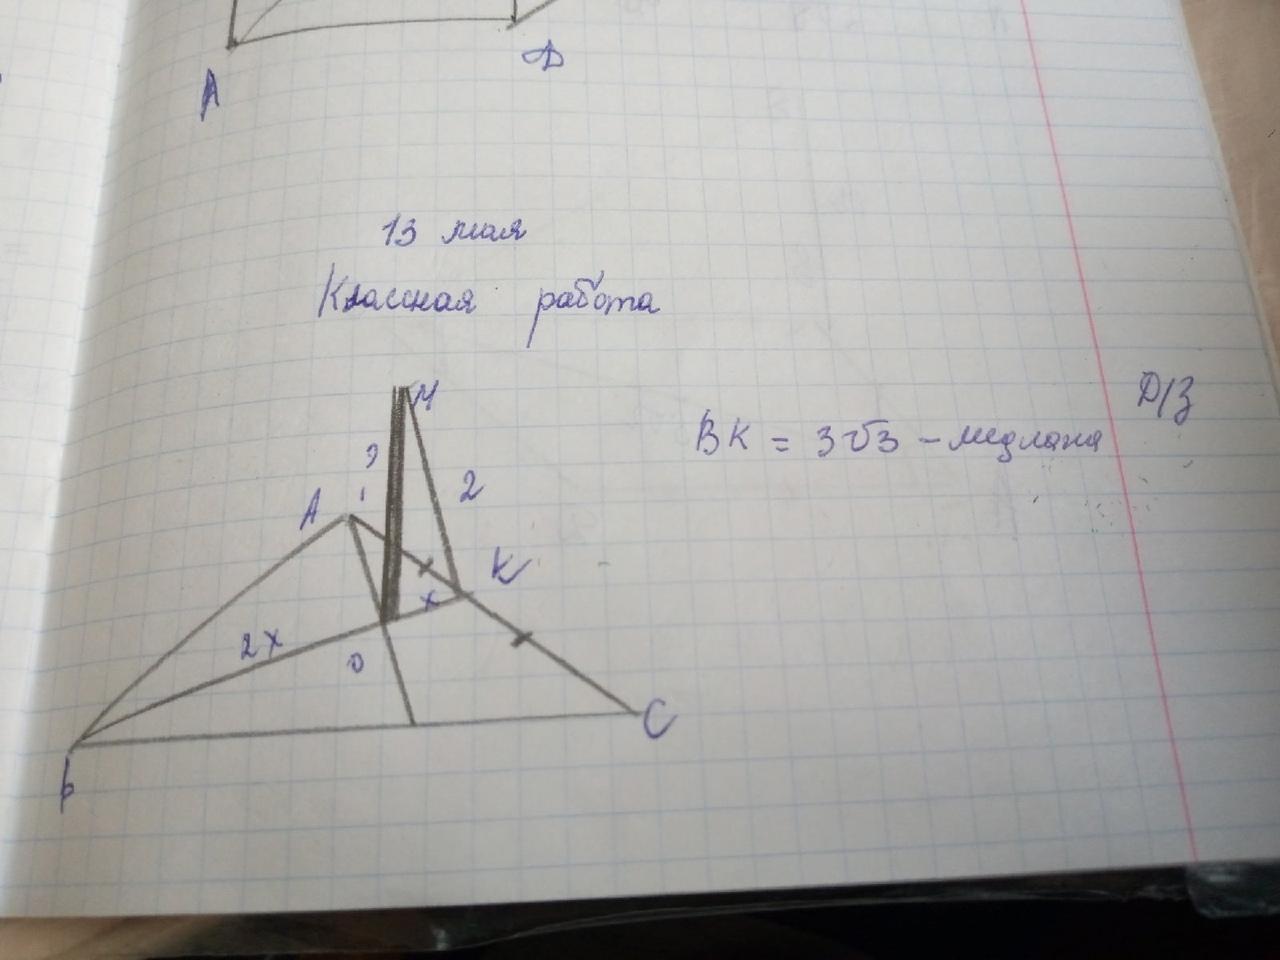 A
D
13 мая
Классная работа
Д/З
M
BK = 3√3 - медиана
?
A
2
K
x
2x
O
C
B